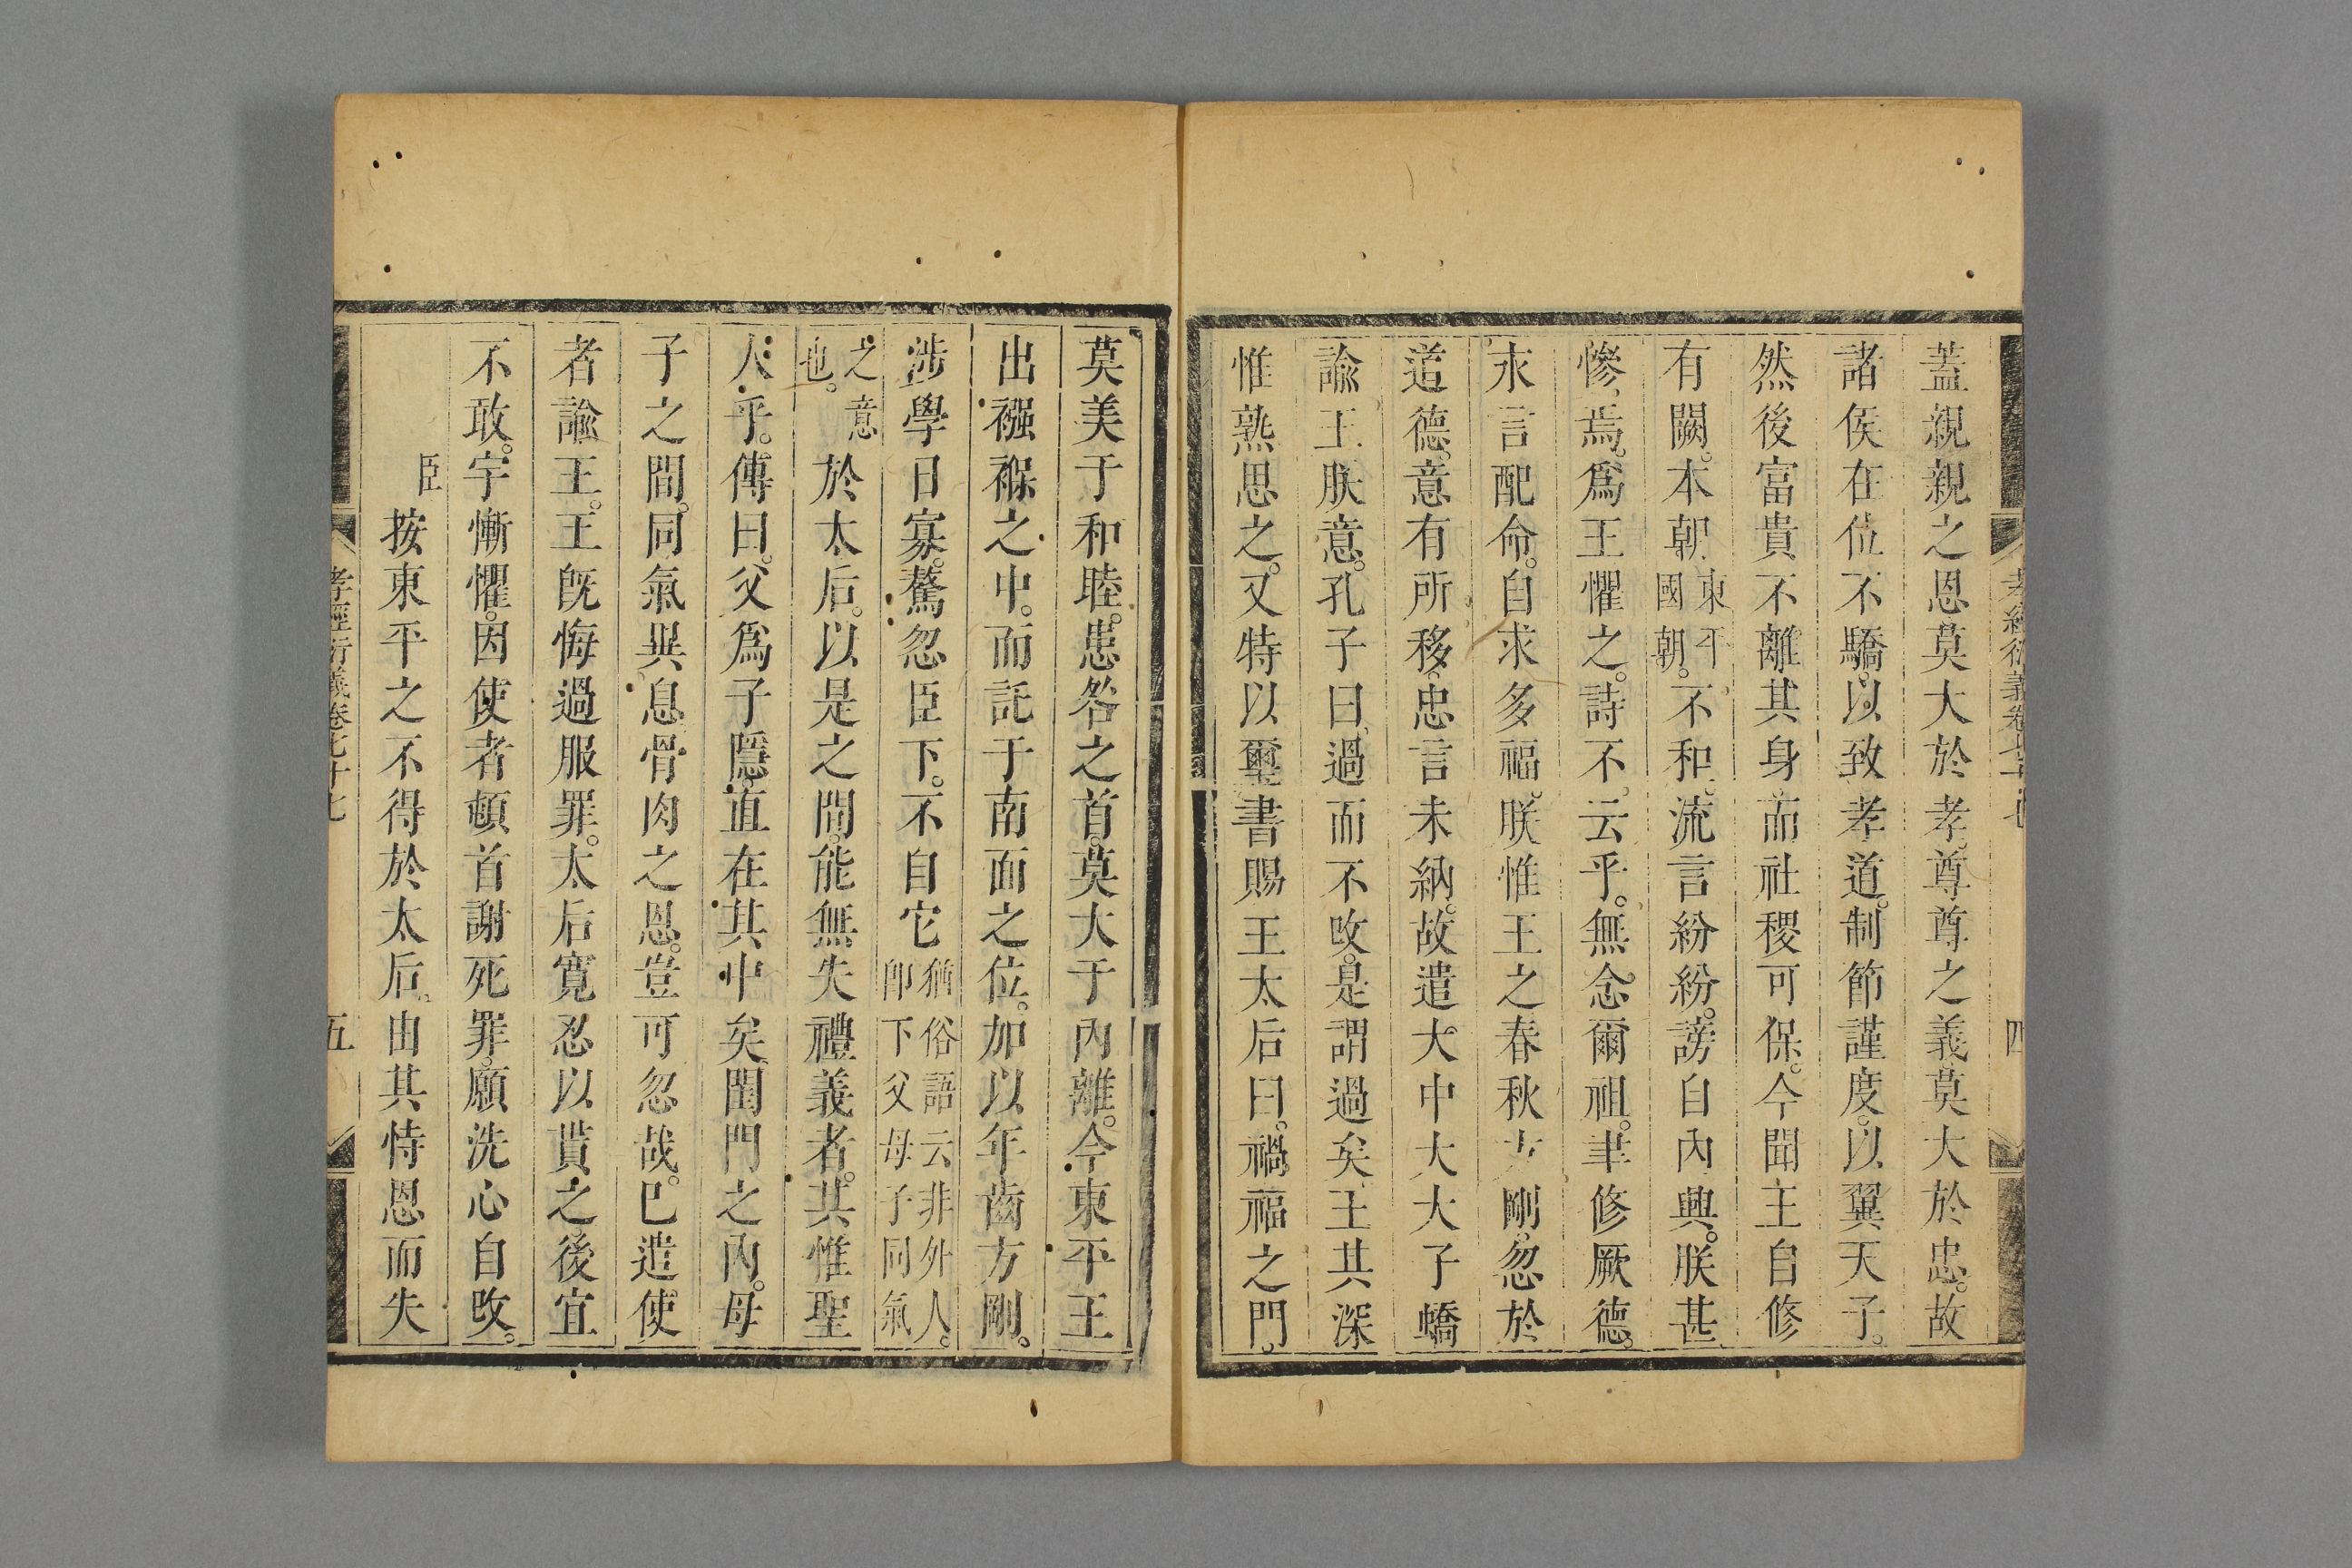 蓋親親之恩莫大於孝。尊尊之義莫大於忠。故
諸侯在位不驕。以致孝道。制節謹度。以翼天子。
然後富貴不離其身。而社稷可保。今聞王自修
有闕。本朝東平國朝。不和。流言紛紛。謗自內興。朕甚
慘焉。爲王懼之。詩不云乎。無念爾祖。聿修厥德。
永言配命。自求多福。朕惟王之春秋方剛。忽於
道德。意有所移。忠言未納。故遣大中大夫子蟜
諭王朕意。孔子曰、過而不改。是謂過矣。王其深
惟熟思之。又特以璽書賜王太后曰。禍福之門。
孝經衍義卷七十七
四
莫美于和睦。患咎之首。莫大于內離。今東平王
出襁褓之中。而託于南面之位。加以年齒方剛。
涉學日寡。驁忽臣下。不自它猶俗語云非外人。卽下父母子同氣
之意也。於太后。以是之間。能無失禮義者。其惟聖
人乎。傳曰。父爲子隱。直在其中矣。閨門之內。母
子之間。同氣異息。骨肉之恩。豈可忽哉。巳遣使
者諭王。王旣悔過服罪。太后寬忍以貰之。後宜
不敢。宇慚懼。因使者頓首謝死罪。願洗心自改。
臣按東平之不得於太后。由其恃恩而失
孝經衍義卷七十七
五